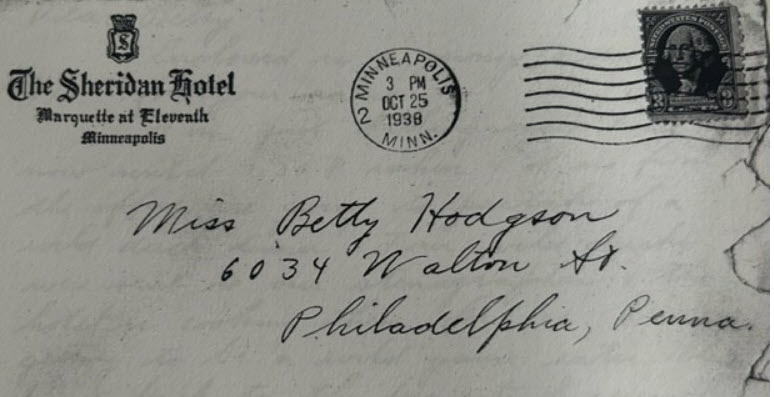 S
The Sheridan Hotel
Marquette at Eleventh
Minneapolis
MINNEAPOLIS
2
3 PM
OCT 25
1938
MINN.
3
3
Miss Betty Hodgson
6034 Walton St.
Philadelphia, Penna.